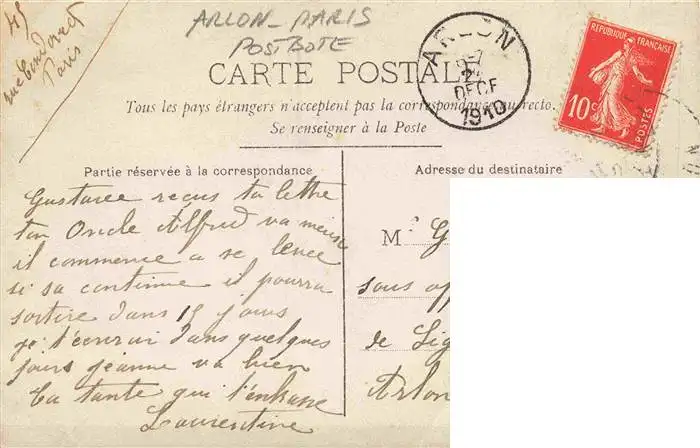 45
rue
Paris
ARLON - PARIS
POSTBOTE
ARLON
DECE
1910
REPUBLIQUE FRANÇAISE
10c
POSTES
CARTE POSTALE
Tous les pays étrangers n'acceptent pas la correspondance au recto.
Se renseigner à la Poste
Partie réservée à la correspondance
Gustave recus ta lettre
ton Oncle Alfred va meiux
il commence a se lever
si sa continue il pourra
sortire dans 15 jours
je t'écrirai dans quelques
jours jeanne va bien
ta tante qui t'enbrasse
Laurentine
Adresse du destinataire
Mr G
sous of
de Lig
Arlon